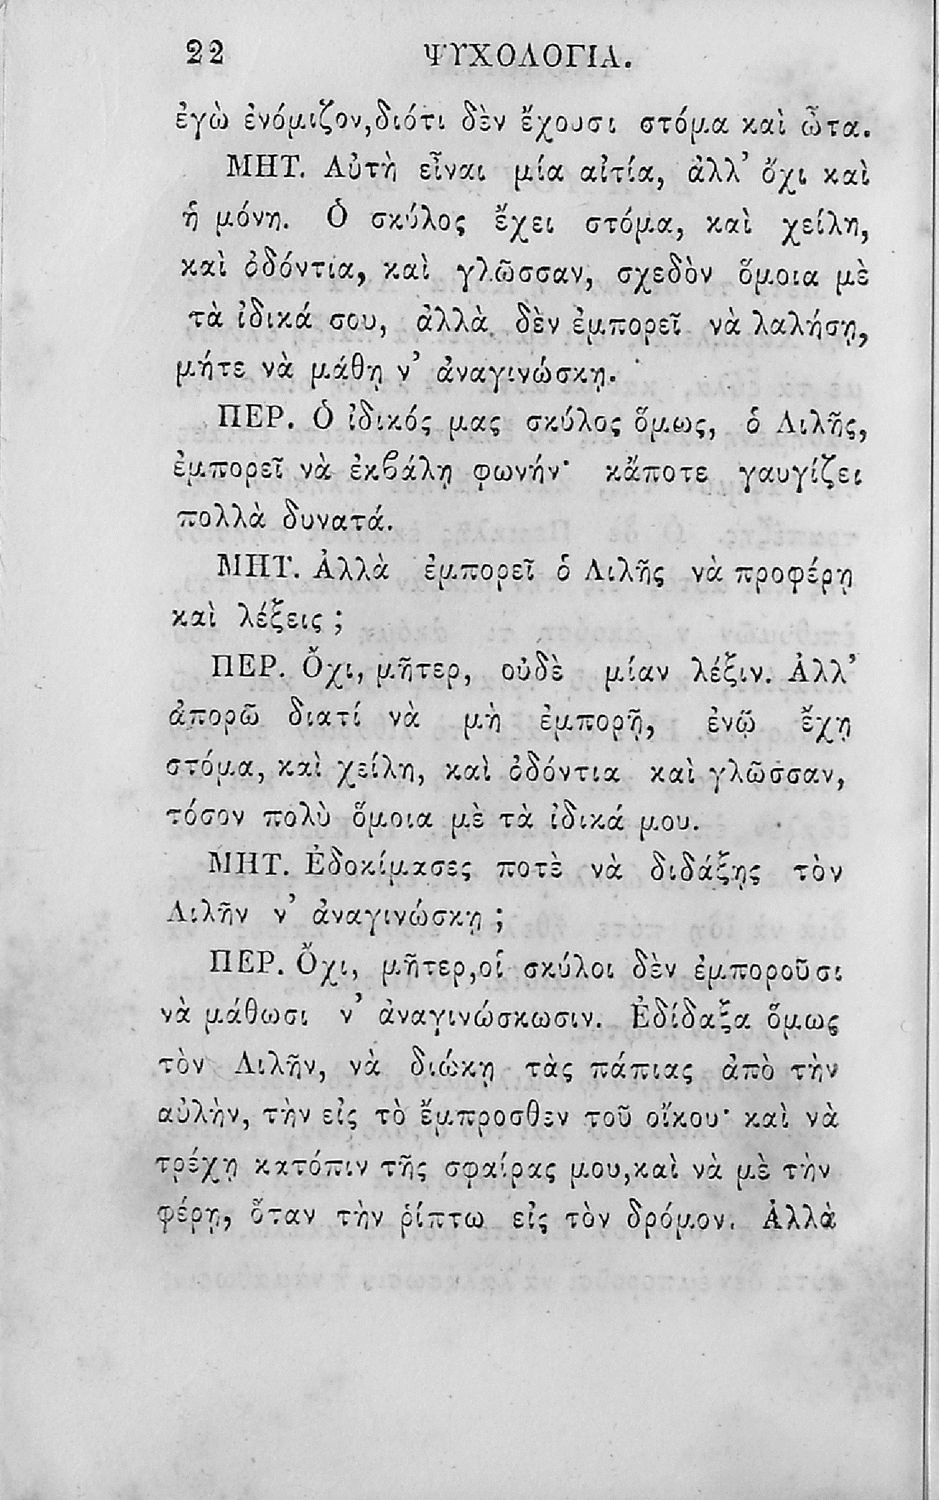 22 ΨΥΧΟΛΟΓΙΑ.
ἐγὼ ἐνόμιζον, διότι δὲν ἔχουσι στόμα καὶ ὦτα.
ΜΗΤ. Αὐτὴ εἶναι μία αἰτία, ἀλλ’ ὄχι καὶ
ἡ μόνη. Ὁ σκύλος ἔχει στόμα, καὶ χείλη,
καὶ ὀδόντια, καὶ γλῶσσαν, σχεδὸν ὅμοια μὲ
τὰ ἰδικά σου, ἀλλὰ δὲν ἐμπορεῖ νὰ λαλήσῃ,
μήτε νὰ μάθῃ ν’ ἀναγινώσκῃ.
ΠΕΡ. Ὁ ἰδικός μας σκύλος ὅμως, ὁ Λιλῆς,
ἐμπορεῖ νὰ ἐκβάλῃ φωνήν· κᾄποτε γαυγίζει
πολλὰ δυνατά.
ΜΗΤ. Ἀλλὰ ἐμπορεῖ ὁ Λιλῆς νὰ προφέρῃ
καὶ λέξεις ;
ΠΕΡ. Ὄχι, μῆτερ, οὐδὲ μίαν λέξιν. Ἀλλ’
ἀπορῶ διατί νὰ μὴ ἐμπορῇ, ἐνῷ ἔχῃ
στόμα, καὶ χείλη, καὶ ὀδόντια καὶ γλῶσσαν,
τόσον πολὺ ὅμοια μὲ τὰ ἰδικά μου.
ΜΗΤ. Ἐδοκίμασες ποτὲ νὰ διδάξῃς τὸν
Λιλῆν ν’ ἀναγινώσκῃ ;
ΠΕΡ. Ὄχι, μῆτερ, οἱ σκύλοι δὲν ἐμποροῦσι
νὰ μάθωσι ν’ ἀναγινώσκωσιν. Ἐδίδαξα ὅμως
τὸν Λιλῆν, νὰ διώκῃ τὰς πάπιας ἀπὸ τὴν
αὐλὴν, τὴν εἰς τὸ ἔμπροσθεν τοῦ οἴκου· καὶ νὰ
τρέχῃ κατόπιν τῆς σφαίρας μου, καὶ νὰ μὲ τὴν
φέρῃ, ὅταν τὴν ῥίπτω εἰς τὸν δρόμον. Ἀλλὰ